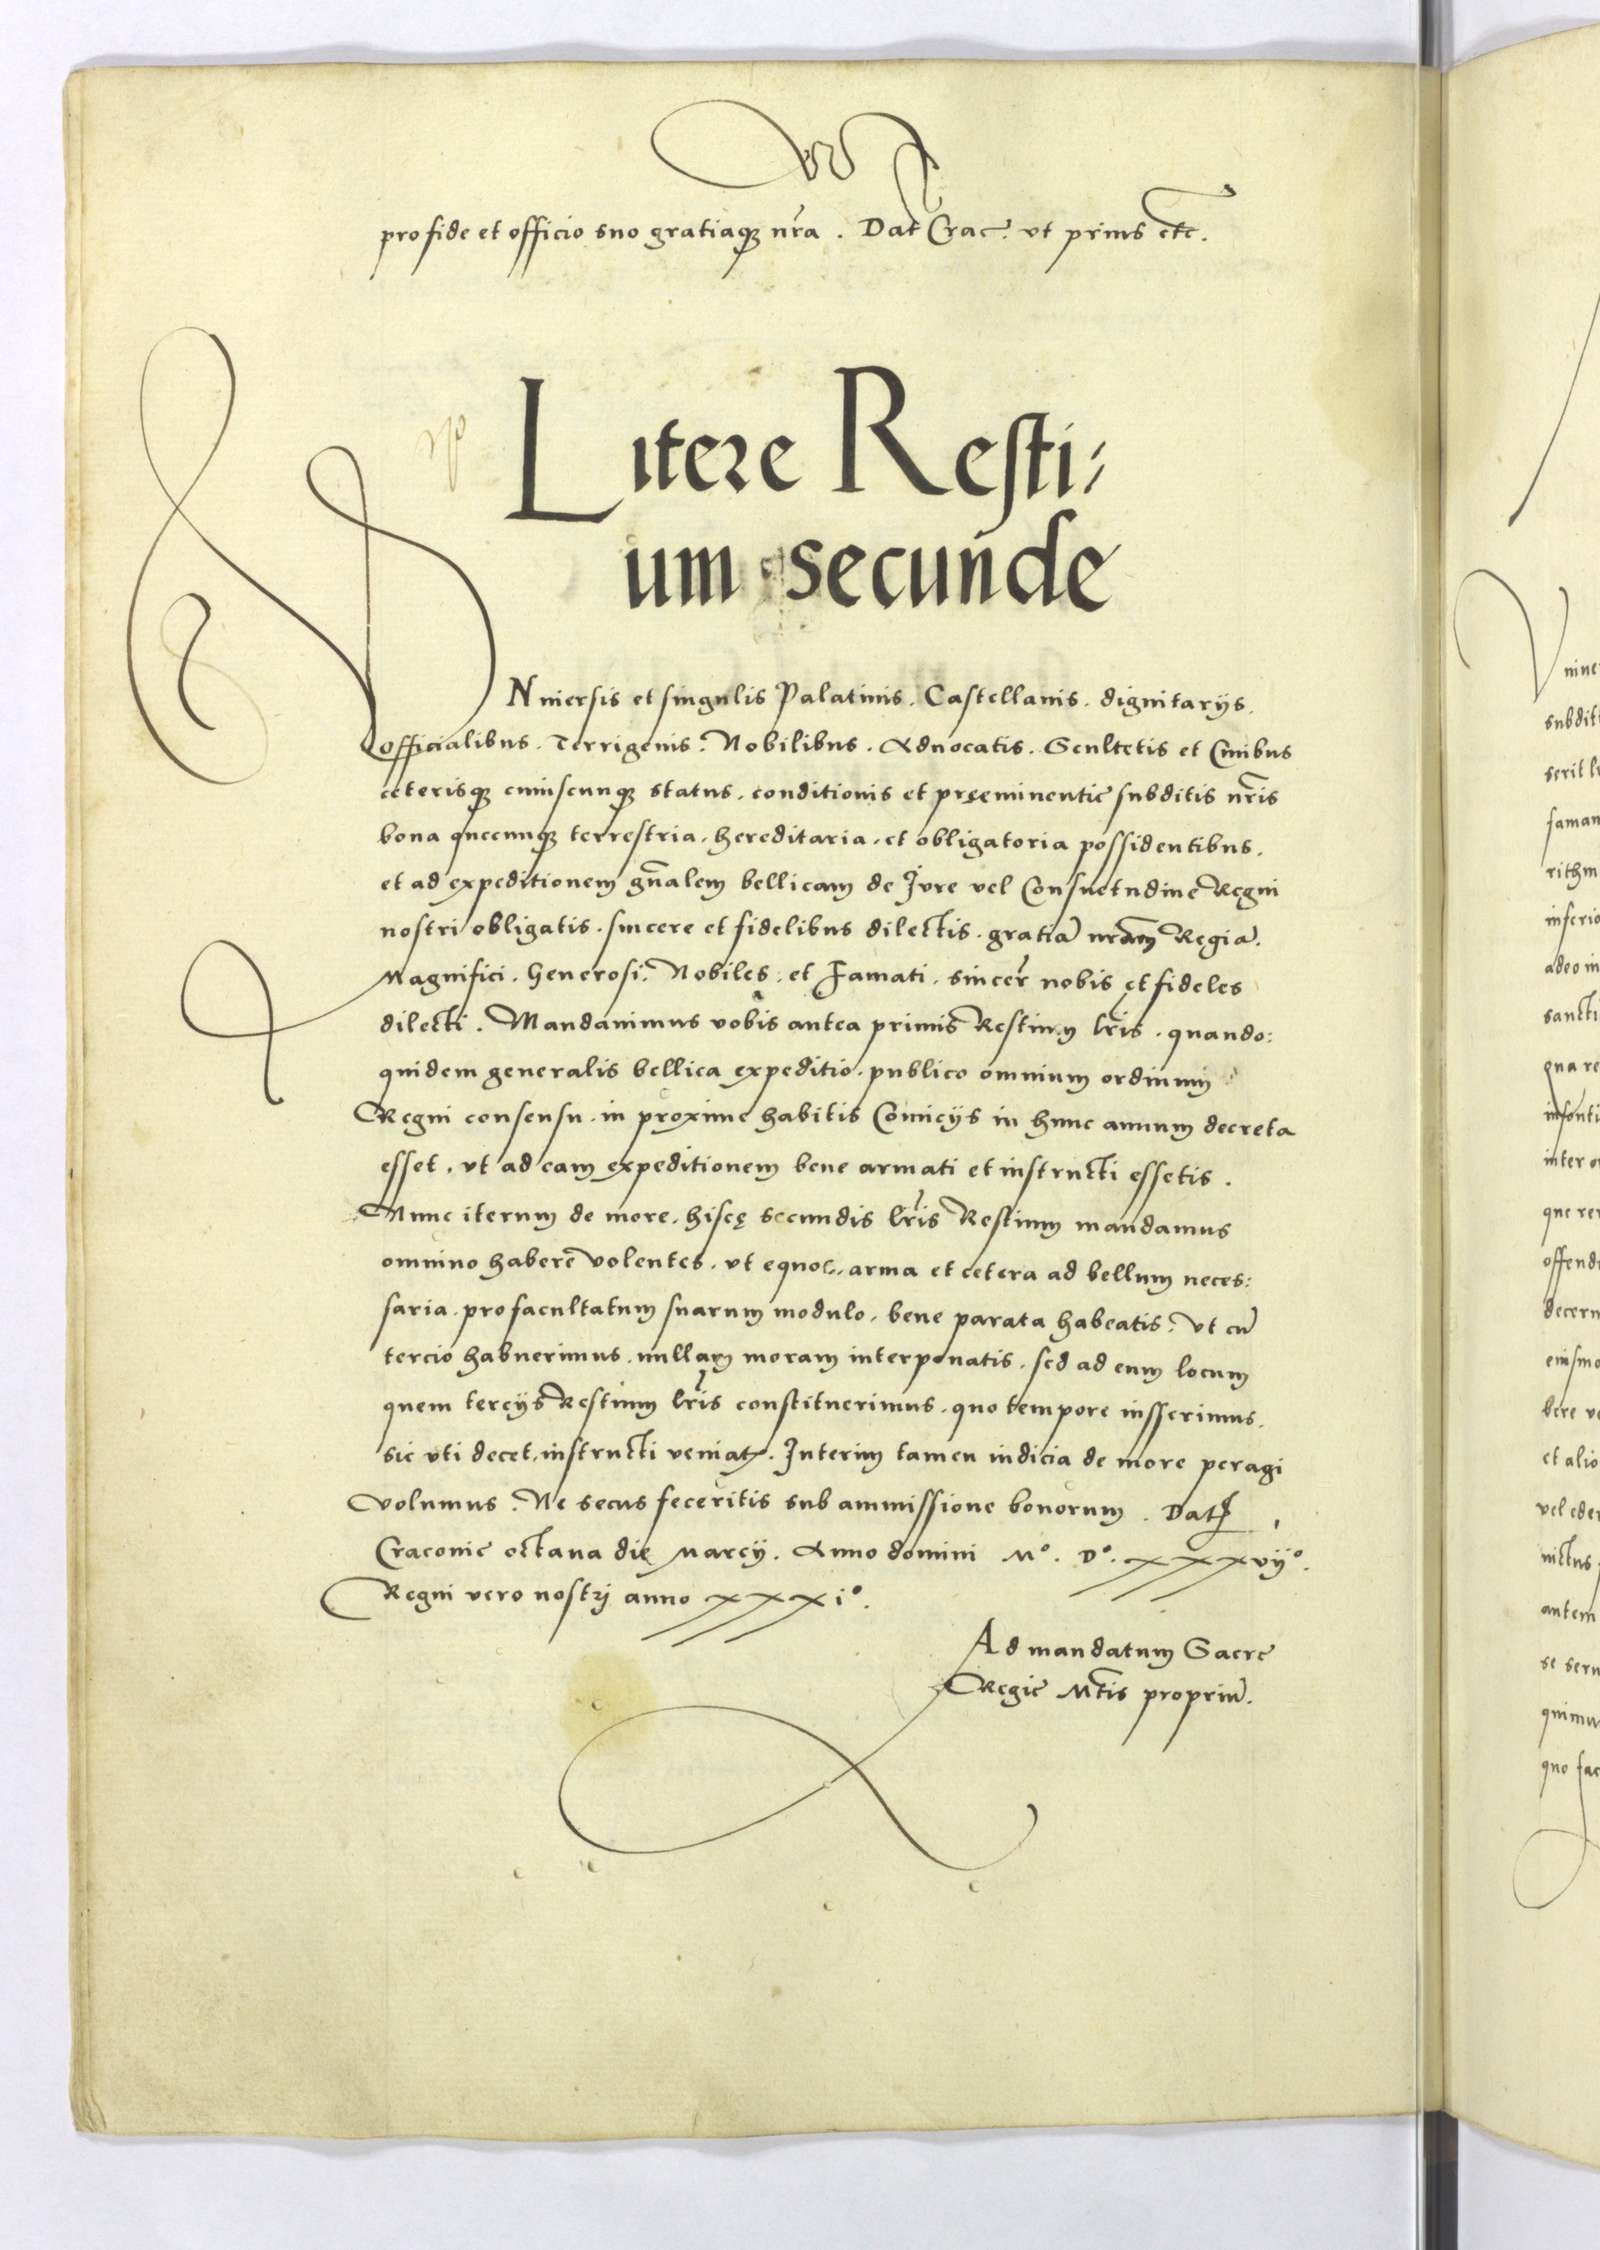 pro fide et officio suo gratiaqꝫ nr̃a . Dat̃ Crac̃. ut prius etc̃.
Litere Resti⸗
um secunde
Vniuersis et singulis Palatinis . Castellanis . dignitarijs .
officialibus . Terrigenis . Nobilibus . Aduocatis . Scultetis et Ciuibus
ceterisqꝫ cuiuscunqꝫ status . conditionis et pręeminentie subditis nr̃is
bona quecunqꝫ terrestria . hereditaria . et obligatoria possidentibus .
et ad expeditionem gñalem bellicam de Jure vel Consuetudine Regni
nostri obligatis . sincere et fidelibus dilectis . gratiã nr̃am Regiã.
Magnifici . Generosi . Nobiles . et Famati . sincer̃ nobis et fideles
dilecti . Mandauimus vobis antea primis Restium lr̃is . quando:
quidem generalis bellica expeditio . publico omnium ordinum
Regni consensu . in proxime habitis Comicijs in hunc annum decreta
esset . ut ad eam expeditionem bene armati et instructi essetis .
Nunc iterum de more . hiscę secundis lr̃is Restium mandamus
omnino habere volentes . ut equos . arma et cetera ad bellum neces:
saria . pro facultatum suarum modulo . bene parata habeatis . Vt cũ
tercio habuerimus . nullam moram interponatis . sed ad eum locum
quem tercijs Restium lr̃is constituerimus . quo tempore iusserimus .
sic uti decet . instructi veniatꝭ . Interim tamen iudicia de more peragi
volumus . Ne secus feceritis sub ammissione bonorum . Datꝭ
Cracouie octaua die Marcij . Anno domini Mº. Dº. xxxvijº.
Regni vero nostri anno xxxiº.
Ad mandatum Sacre
Regie Mt̃is propriũ.